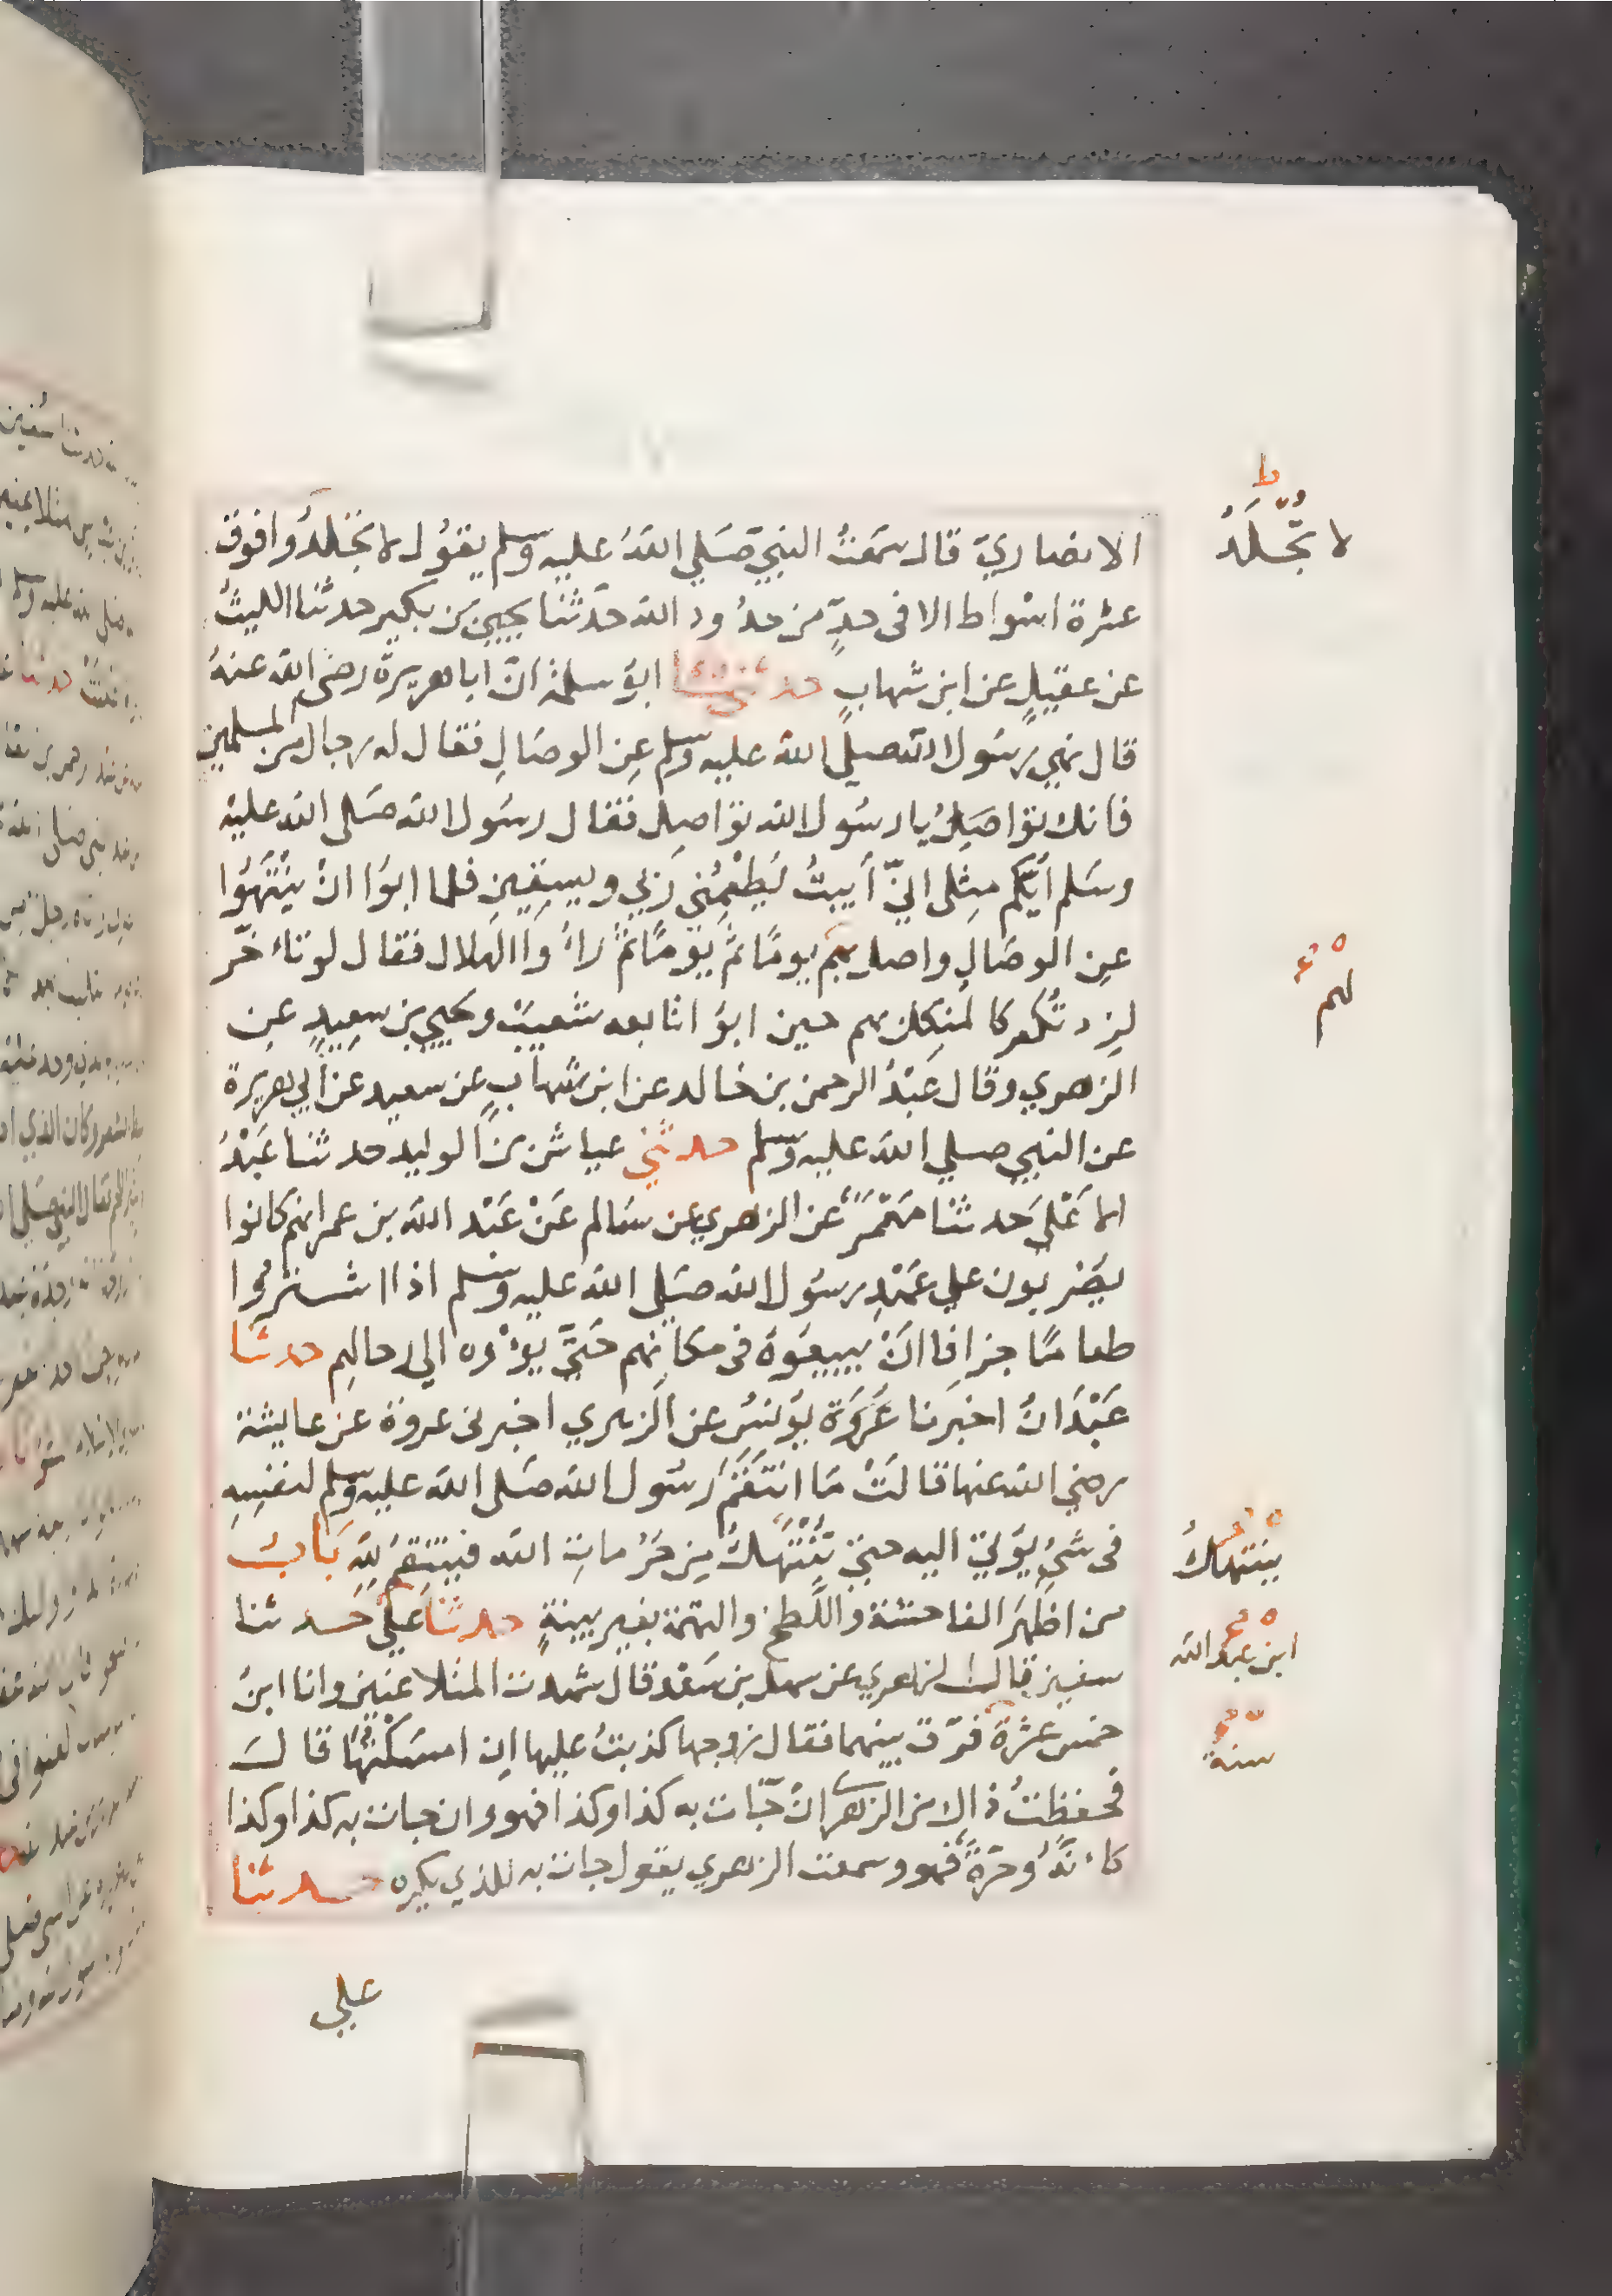 الانصاريّ قال سَمَعتُ النبيَّ صَلي اللهُ عليه وسلم يقوُل لا تجْلدُوا فوق
عشرة اسْواط الا في حدٍّ من حدُود الله حدّثنا يحيى بن بكير حدثنا الليثُ
عن عقيلٍ عن ابن شهابٍ حدثنا ابوُ سلمة انّ ابا هريرة رضي الله عنهُ
قال نهي رسَول الله صلي الله عليه وسلم عنِ الوصَالِ فقال له رجال من المسلمين
فانك تواصَلُ يا رسُول الله تواصل فقال رسَول الله صَلى الله عليه
وسَلم ايّكم مثِلى انيّ أبيتُ يُطْعِمُني رَبي ويسقِينِ فلما ابوَا انْ يَنْتَهوُا
عنِ الوصَالِ واصل بهم يومًا ثمَّ يوَمًا ثمَّ رأوا الهلال فقال لو تأخّر
لزدتُكم كالمنكل بهم حين ابوَا تابعه شعيبٌ ويحيي بن سعِيدٍ عن
الزهري وقال عَبْدُ الرحمن بن خالد عن ابن شهابٍ عن سعيد عن ابي هريرة
عن النبي صلي الله عليه وسلم حدثني عياش بن الوليد حدثنا عَبْدُ
الاعْلىَ حدثنا مَعْمَرَ عن الزهري عن سَالم عَنْ عَبْد الله بن عمر انهم كانوا
يضَربون علي عَهْدِ رسَول الله صَلي الله عليه وسلم اذا اشتروُا
طعامًا جزافا انَ يبيعوَهُ في مكانهم حَتيَّ يوءْوه الي رحالهم حدثنا
عَبْدَانُ اخبرنا عَروَة يوُنسُ عن الزهري اخبرنى عروة عن عايشة
رضي الله عنها قالتْ مَا انتَقَمَ رسَول الله صَلى الله عليه وسلم لنفسِهِ
في شيُ يوَتيَ اليه حتي تُنْتهَكُ من حرُماتِ الله فينتقمُ للِهِ بَابُ
من اظهَر الفاحشة واللَّطخ والتهمة بغير بينةٍ حدثنا عَليّ حَدثنا
سفين قال الزهري عن سهل بن سَعْد قال شهدت المتلاعنين وانا ابنُ
خمس عشرة فرّق بينهما فقال زوجها كذبتُ عليها ان امسَكْتُهَا قالَ
فحفظتُ ذاك من الزهري انْ جّات به كذا وكذا فهو وان جات به كذا وكذا
كاَنَّهُ وحَرَةً فهو وسمعت الزهري يقول جات به للذي يكره حدثنا
علي
لا تُجّلَدُ
لهم
ينتهكُ
ابن عبد الله
سنة